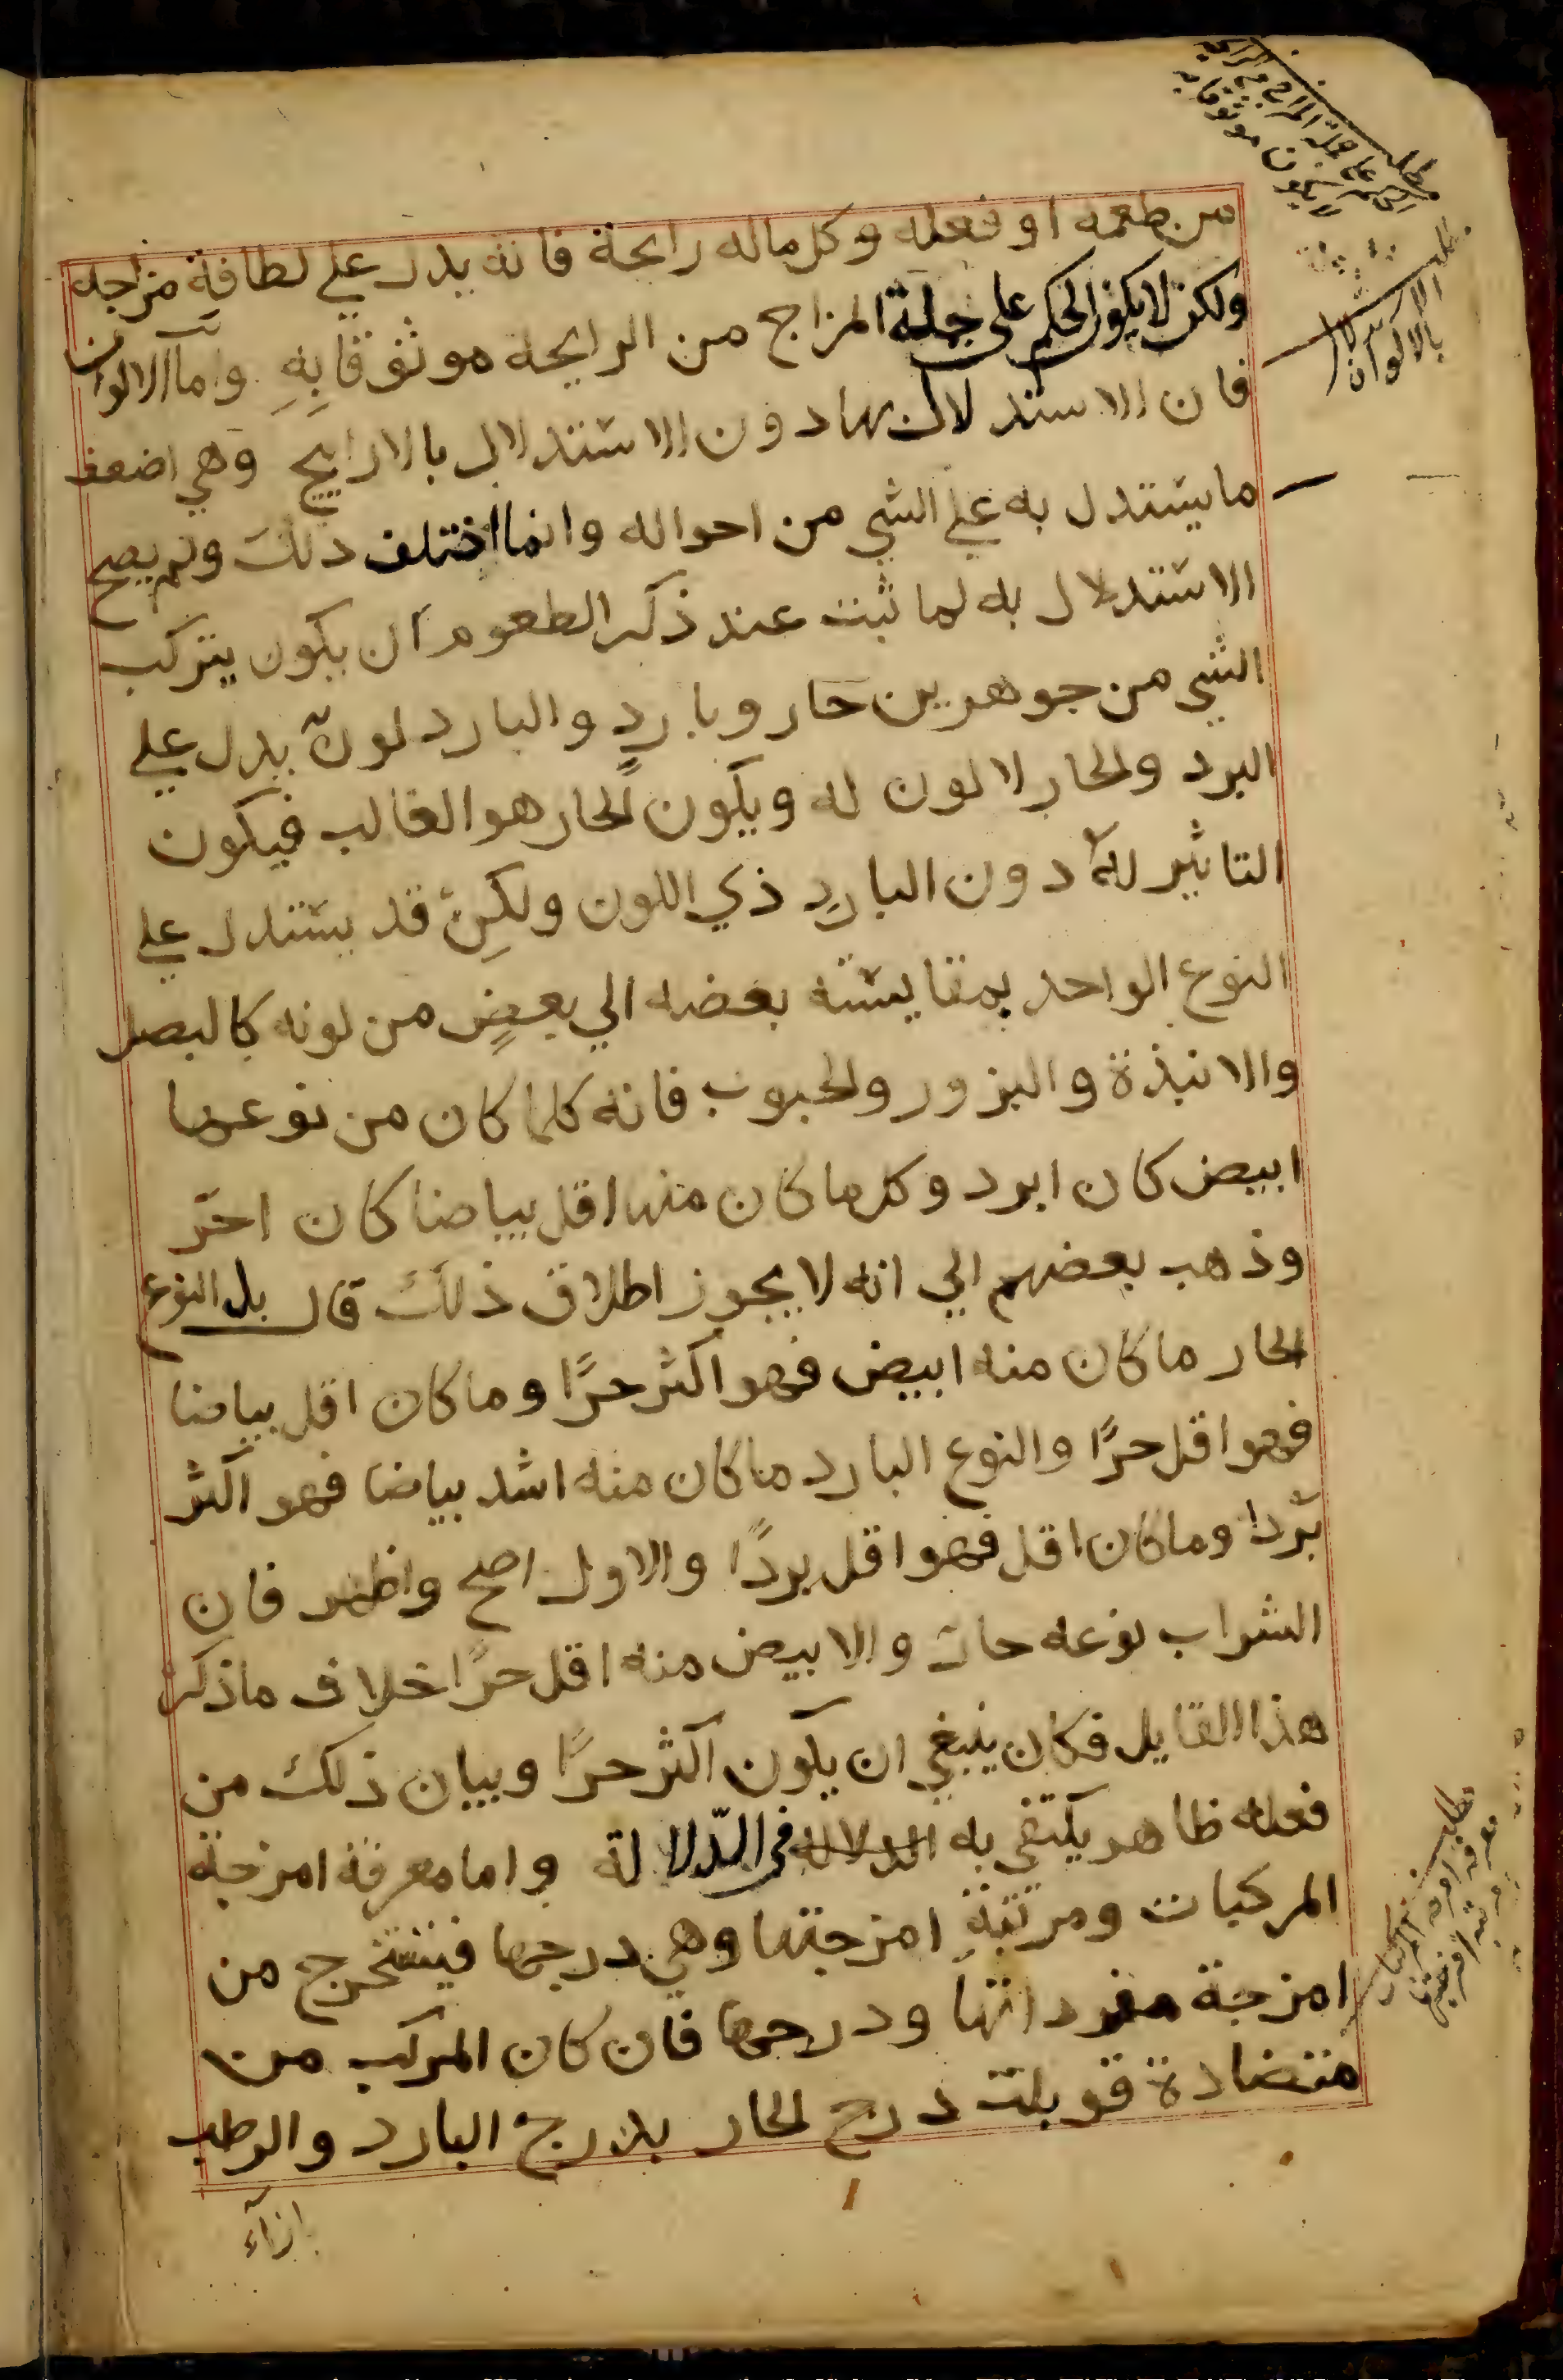 من طعمه او فعله وكل ماله رايحة فانه يدل علي لطافة مزاجه
ولكن لا يكون الحكم على جملة المزاج من الرايحه موثوقا بهِ واما الالوان
فان الاستدلال بها دون الاستدلال بالاراييح وهي اضعف
ما يستدل به علي الشي من احواله وانما اختلف ذلك ولم يصح
الاستدلال به لما ثبت عند ذكر الطعوم ان يكون يتركب
الشي من جوهرين حار وباردٍ والبارد لونه يدل علي
البرد والحار لا لون له ويكون الحار هو الغالب فيكون
التاثير له دون الباردِ ذي اللون ولكنّ قد يستدل علي
النوع الواحد بمقايسته بعضه الي بعضٍ من لونه كالبصل
والانبذة والبزور والحبوب فانه كلما كان من نوعها
ابيض كان ابرد وكل ما كان منها اقل بياضا كان احرّ
وذهب بعضهم الي انه لا يجوز اطلاق ذلك قال بل النوع
الحار ما كان منه ابيض فهو اكثر حرًا وما كان اقل بياضا
فهو اقل حرًا والنوع البارد ما كان منه اشد بياضا فهو اكثر
بردا وما كان اقل فهو اقل بردًا والاول اصح واظهر فان
الشراب نوعه حار والابيض منه اقل حرًا خلاف ما ذكر
هذا القايل فكان ينبغي ان يكون اكثر حرًا وبيان ذلك من
فعله ظاهر يكتفي به الدلاله في الدّلالة واما معرفة امزجة
المركبات ومرتبةِ امزجتها وهي درجها فيستخرج من
امزجة مفرداتها ودرجها فان كان المركب من
متضادة قوبلت درج الحار بدرج البارد والرطب
بازآء
مطلب
الحكم على جملة المزاج من الرايحه
لا يكون موثوقا به
بالالوان
مطلب
معرفة امزجة المركبات
ومرتبة امزجتها